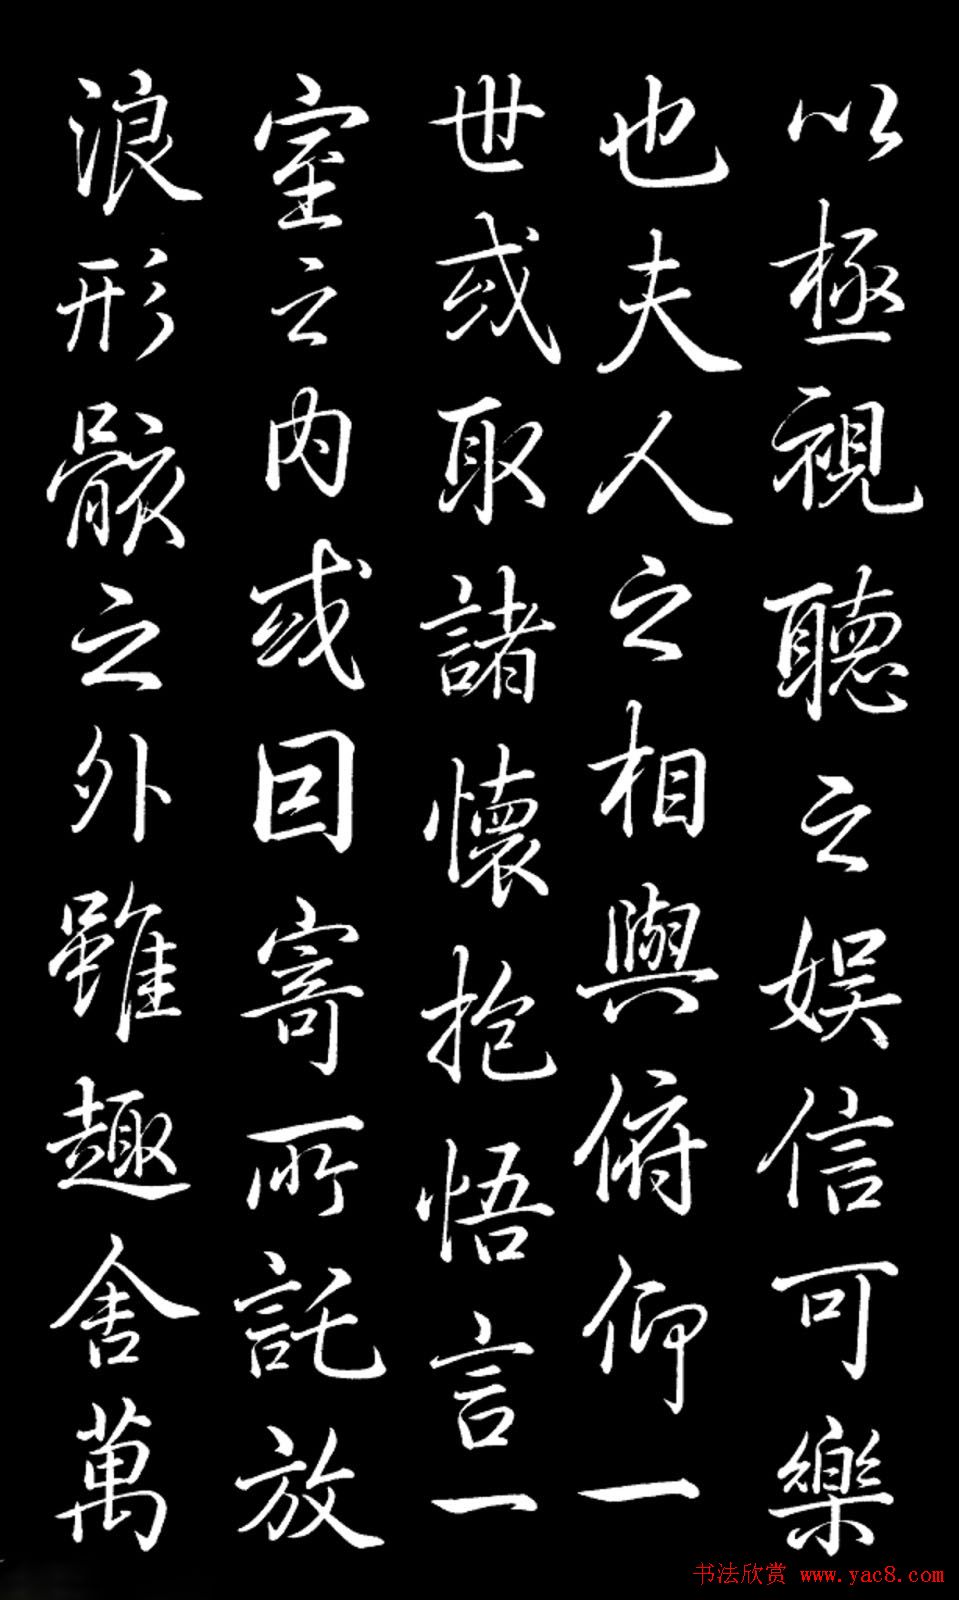 以極視聽之娛信可樂
也夫人之相與俯仰一
世或取諸懷抱悟言一
室之內或因寄所託放
浪形骸之外雖趣舍萬
书法欣赏 www.yac8.com